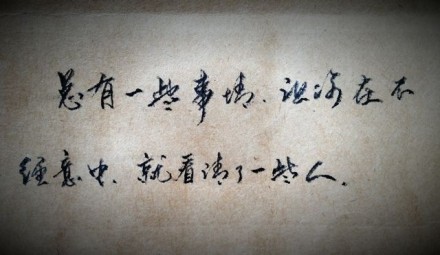 总有一些事情、让你在不
经意中、就看清了一些人。